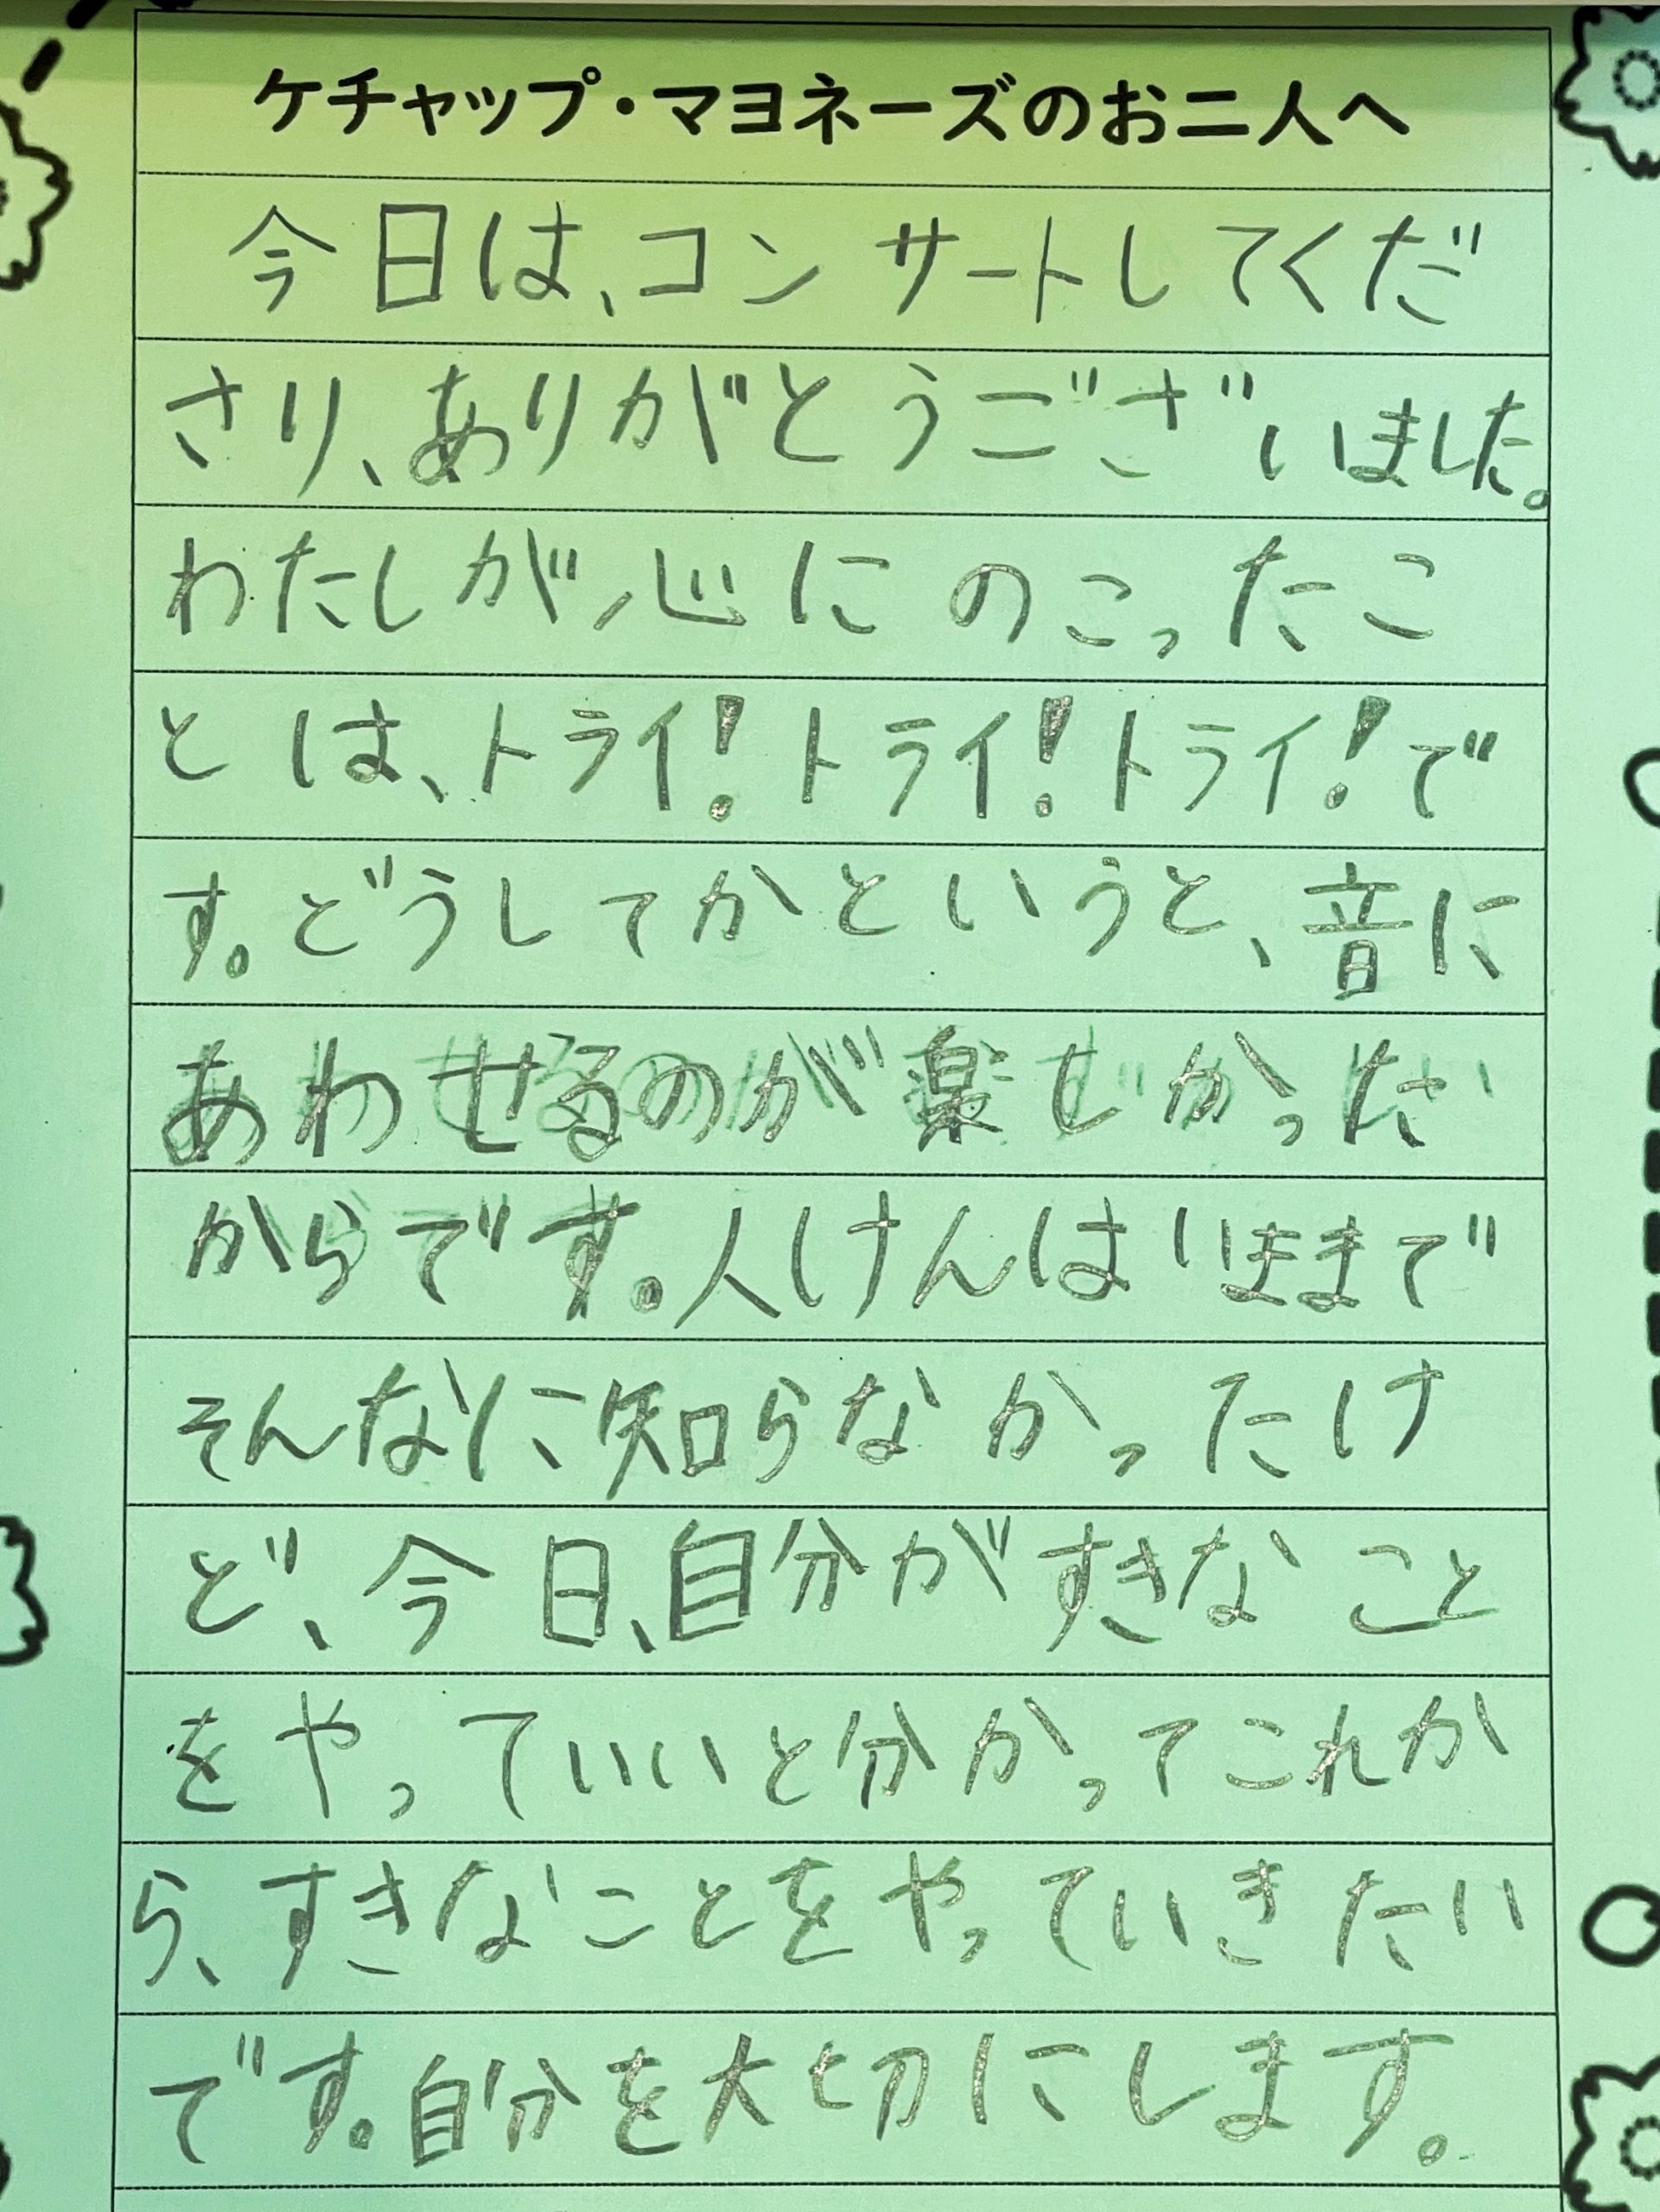 ケチャップ・マヨネーズのお二人へ
今日は、コンサートしてくだ
さり、ありがとうございました。
わたしが心にのこったこ
とは、トライ!トライ!トライ!で
す。どうしてかというと、音に
あわせるのが楽しかった
からです。人けんはいままで
そんなに知らなかったけ
ど、今日、自分がすきなこと
をやっていいと分かってこれか
ら、すきなことをやっていきたい
です。自分を大切にします。